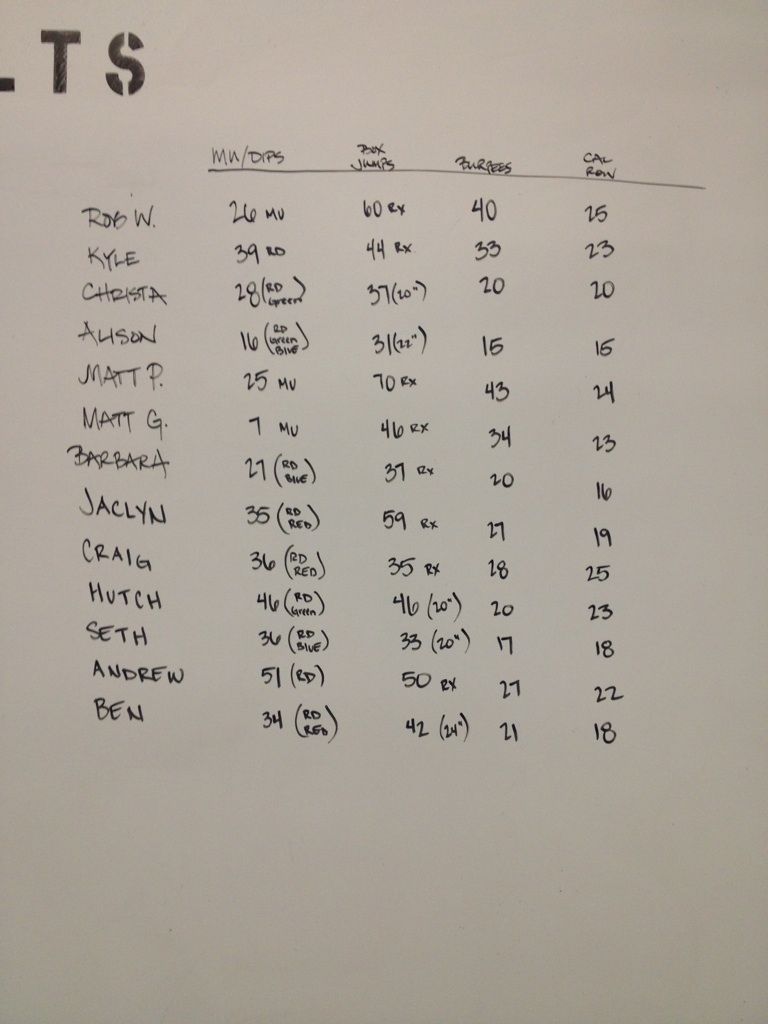 LTS
MU/DIPS BOX JUMPS BURPEES CAL ROW
ROB W. 26 MU 60 RX 40 25
KYLE 39 RD 44 RX 33 23
CHRISTA 28 (RD Green) 37 (20") 20 20
ALISON 16 (RD Green BLUE) 31 (22") 15 15
MATT P. 25 MU 70 RX 43 24
MATT G. 7 MU 46 RX 34 23
BARBARA 27 (RD BLUE) 37 RX 20 16
JACLYN 35 (RD RED) 59 RX 27 19
CRAIG 36 (RD RED) 35 RX 28 25
HUTCH 46 (RD Green) 46 (20") 20 23
SETH 36 (RD BLUE) 33 (20") 17 18
ANDREW 51 (RD) 50 RX 27 22
BEN 34 (RD RED) 42 (24") 21 18